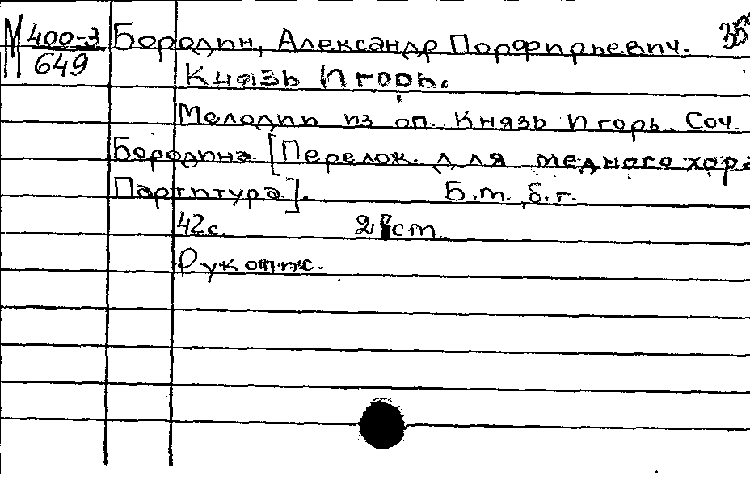 М 400-3 Бородин, Александр Порфирьевич. 35
649 Князь Игорь.
Мелодии из оп. Князь Игорь. Соч.
Бородина [Перелож. для медного хора
Партитура]. Б.м., б.г.
42с. см
Рукопис.